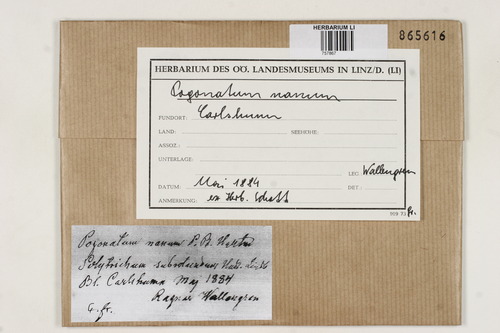 HERBARIUM LI
757867
865616
HERBARIUM DES OÖ. LANDESMUSEUMS IN LINZ/D. (LI)
Pogonatum nanum
FUNDORT: Carlshamn
LAND: SEEHÖHE:
ASSOZ.:
UNTERLAGE:
LEG.: Wallengren
DATUM: Mai 1884 DET.:
ANMERKUNG: ex Herb.
Pogonatum nanum P. B.
Polytrichum
Bl. Carlshamn Maj 1884
Ragnar Wallengren
c. fr.